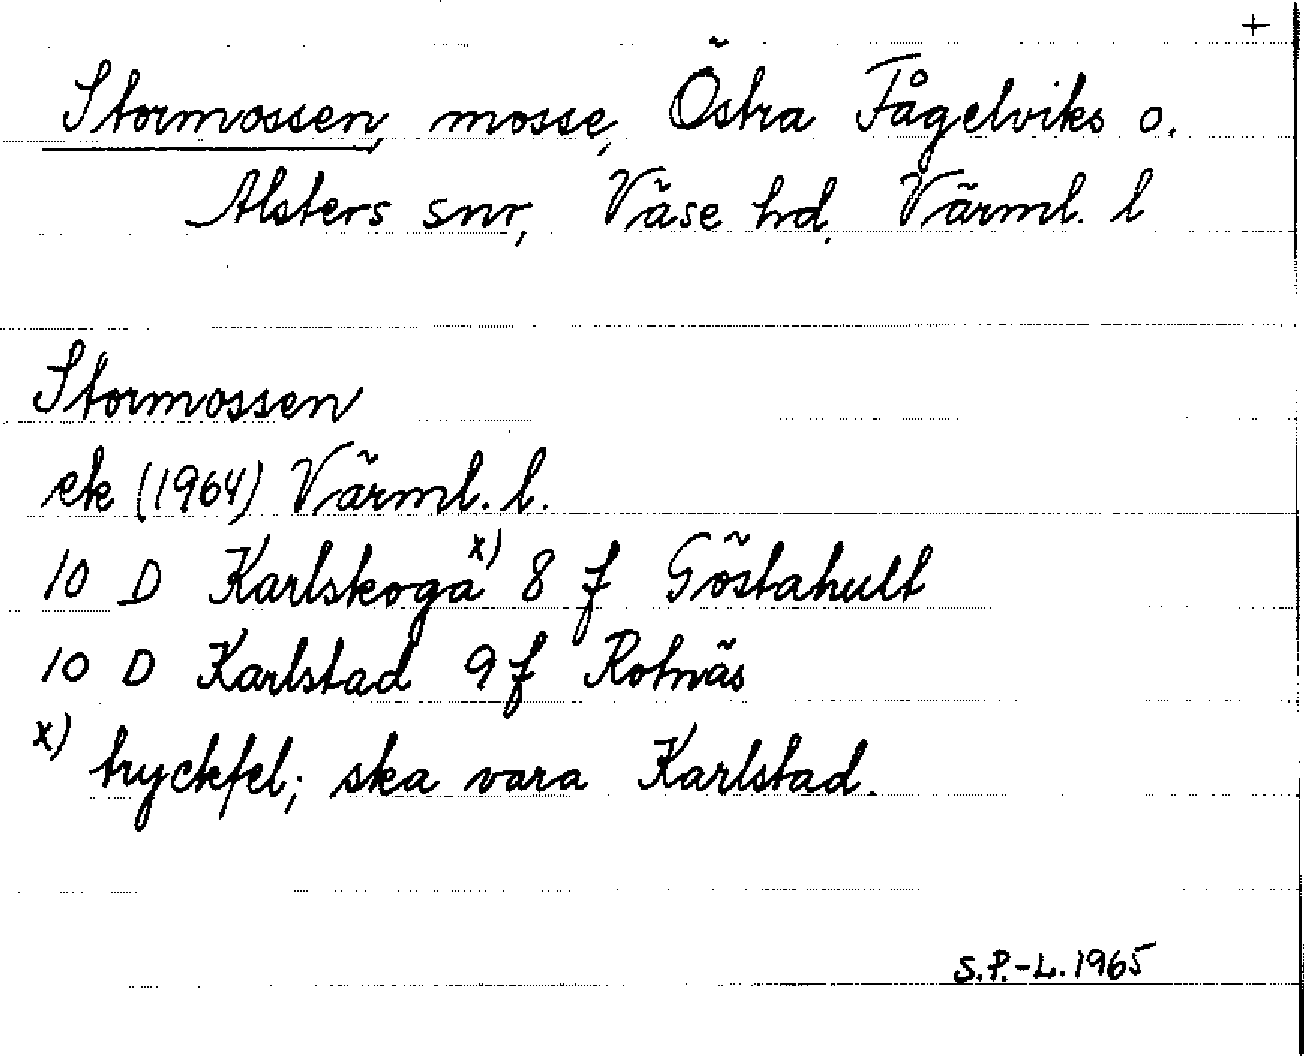 +
Stormossen, mosse, Östra Fågelviks o.
Alsters snr, Väse hd. Värml. l
Stormossen
ek (1964) Värml. l.
10 D Karlskoga x) 8 f Göstahult
10 D Karlstad 9 f Rotnäs
x) tryckfel; ska vara Karlstad.
S.P.-L. 1965